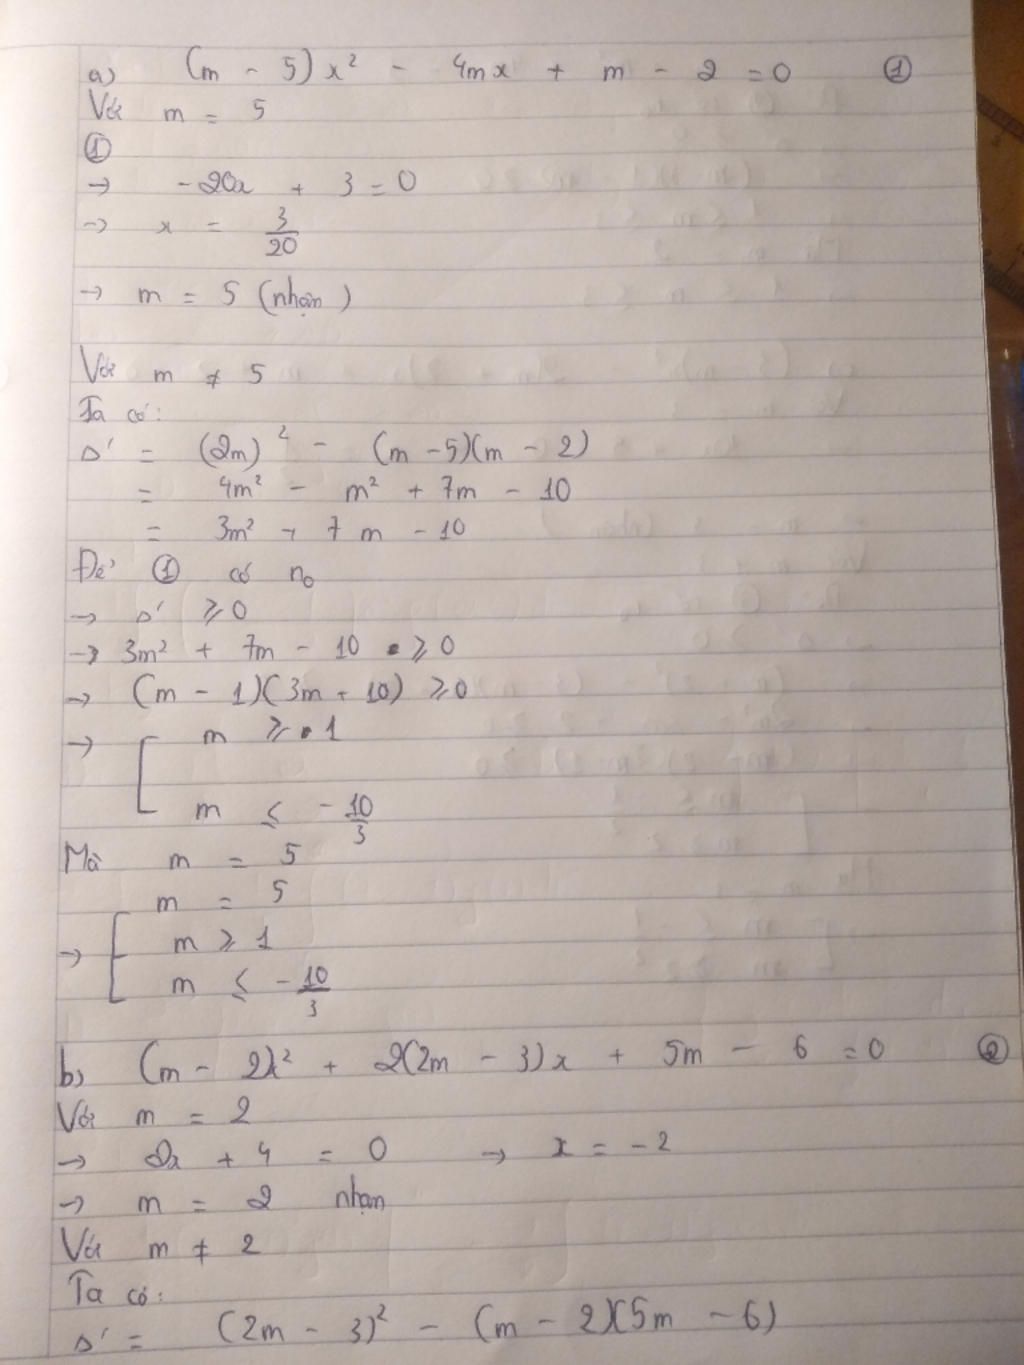 a) (m - 5)x² - 4mx + m - 2 = 0 ①
Với m = 5
①
→ -20x + 3 = 0
→ x = 3/20
→ m = 5 (nhận)
Với m ≠ 5
Ta có:
Δ' = (2m)² - (m - 5)(m - 2)
= 4m² - m² + 7m - 10
= 3m² + 7m - 10
Để ① có n₀
→ Δ' ≥ 0
→ 3m² + 7m - 10 ≥ 0
→ (m - 1)(3m + 10) ≥ 0
→ [ m ≥ 1
m ≤ -10/3
Mà m = 5
m = 5
→ [ m ≥ 1
m ≤ -10/3
b) (m - 2)x² + 2(2m - 3)x + 5m - 6 = 0 ②
Với m = 2
→ 2x + 4 = 0 → x = -2
→ m = 2 nhận
Với m ≠ 2
Ta có:
Δ' = (2m - 3)² - (m - 2)(5m - 6)